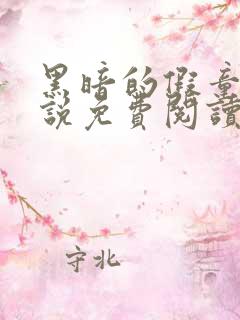 黑暗的假童
說免費閱讀
守北